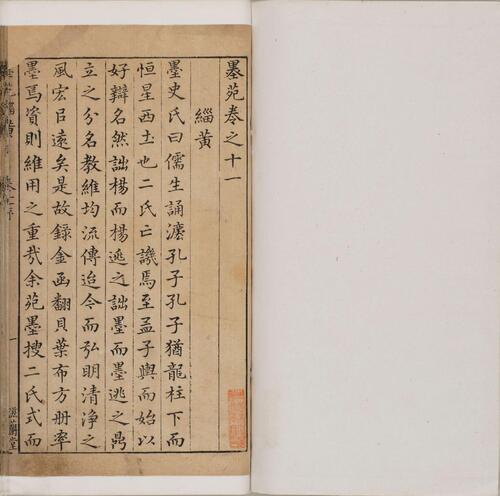 墨苑卷之十一
緇黃
墨史氏曰儒生誦灋孔子孔子猶龍柱下而
恒星西土也二氏亡譏焉至孟子輿而始以
好辯名然詘楊而楊逃之詘墨而墨逃之鼎
立之分名教維均流傳迨今而弘明清淨之
風宏巨遠矣是故錄金函翻貝葉布方冊率
墨焉資則維用之重哉余苑墨搜二氏式而
一
滋蘭堂